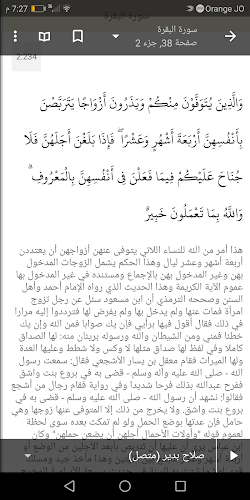 7:27 م
Orange JO
سورة البقرة
سورة البقرة
صفحة 38, جزء 2
2:234
وَالَّذِينَ يُتَوَفَّوْنَ مِنكُمْ وَيَذَرُونَ أَزْوَاجًا يَتَرَبَّصْنَ
بِأَنفُسِهِنَّ أَرْبَعَةَ أَشْهُرٍ وَعَشْرًا ۖ فَإِذَا بَلَغْنَ أَجَلَهُنَّ فَلَا
جُنَاحَ عَلَيْكُمْ فِيمَا فَعَلْنَ فِي أَنفُسِهِنَّ بِالْمَعْرُوفِ ۗ
وَاللَّهُ بِمَا تَعْمَلُونَ خَبِيرٌ
هذا أمر من الله للنساء اللاتي يتوفى عنهن أزواجهن أن يعتددن
أربعة أشهر وعشر ليال وهذا الحكم يشمل الزوجات المدخول
بهن وغير المدخول بهن بالإجماع ومستنده في غير المدخول بها
عموم الآية الكريمة وهذا الحديث الذي رواه الإمام أحمد وأهل
السنن وصححه الترمذي أن ابن مسعود سئل عن رجل تزوج
امرأة فمات عنها ولم يدخل بها ولم يفرض لها فترددوا إليه مرارا
في ذلك فقال أقول فيها برأيي فإن يك صوابا فمن الله وإن يك
خطئا فمني ومن الشيطان والله ورسوله بريئان منه: لها الصداق
كاملا وفي لفظ لها صداق مثلها لا وكس ولا شطط وعليها العدة
ولها الميراث فقام معقل بن يسار الأشجعي فقال: سمعت رسول
الله - صلى الله عليه وآله وسلم - قضى به في بروع بنت واشق
ففرح عبدالله بذلك فرحا شديدا وفي رواية فقام رجال من أشجع
فقالوا: نشهد أن رسول الله - صلى الله عليه وسلم - قضى به في
بروع بنت واشق. ولا يخرج من ذلك إلا المتوفى عنها زوجها وهي
حامل فإن عدتها بوضع الحمل ولو لم تمكث بعده سوى لحظة
لعموم قوله "وأولات الأحمال أجلهن أن يضعن حملهن" وكان
صلاح بدير (متصل)